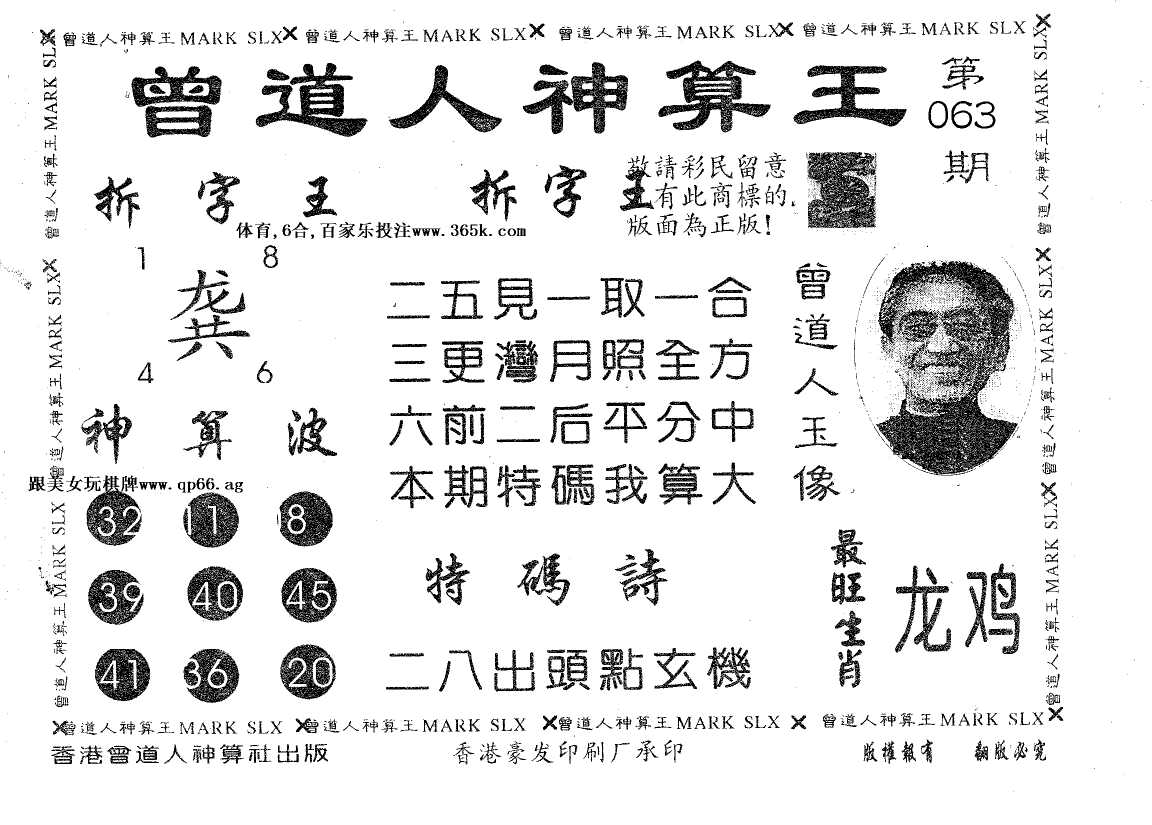 曾道人神算王MARK SLX 曾道人神算王MARK SLX 曾道人神算王MARK SLX 曾道人神算王MARK SLX
曾道人神算王
第
063
期
拆字王 拆字王
敬請彩民留意
有此商標的,
版面為正版!
体育,6合,百家乐投注www.365k.com
1 8
龚
4 6
二五見一取一合
三更灣月照全方
六前二后平分中
本期特碼我算大
曾道人玉像
神算波
跟美女玩棋牌www.qp66.ag
32 11 08
39 40 45
41 36 20
特碼詩
二八出頭點玄機
最旺生肖
龙鸡
曾道人神算王MARK SLX 曾道人神算王MARK SLX 曾道人神算王MARK SLX
曾道人神算王MARK SLX 曾道人神算王MARK SLX 曾道人神算王MARK SLX
曾道人神算王MARK SLX 曾道人神算王MARK SLX 曾道人神算王MARK SLX 曾道人神算王MARK SLX
香港曾道人神算社出版
香港豪发印刷厂承印
版權報有 翻版必究